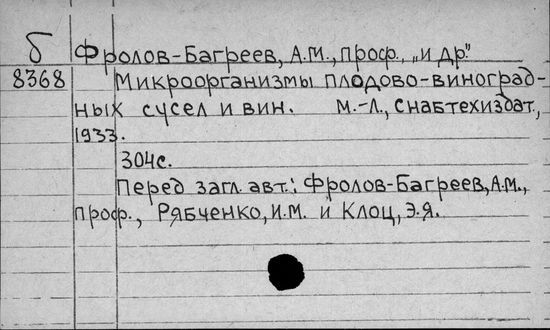 б Фролов-Багреев, А.М., проф., „и др."
8368 Микроорганизмы плодово-виноград-
ных сусел и вин. М.-Л., Снабтехиздат,
1933.
304с.
Перед загл. авт.: Фролов-Багреев, А.М.,
проф., Рябченко, И.М. и Клоц, Э.Я.